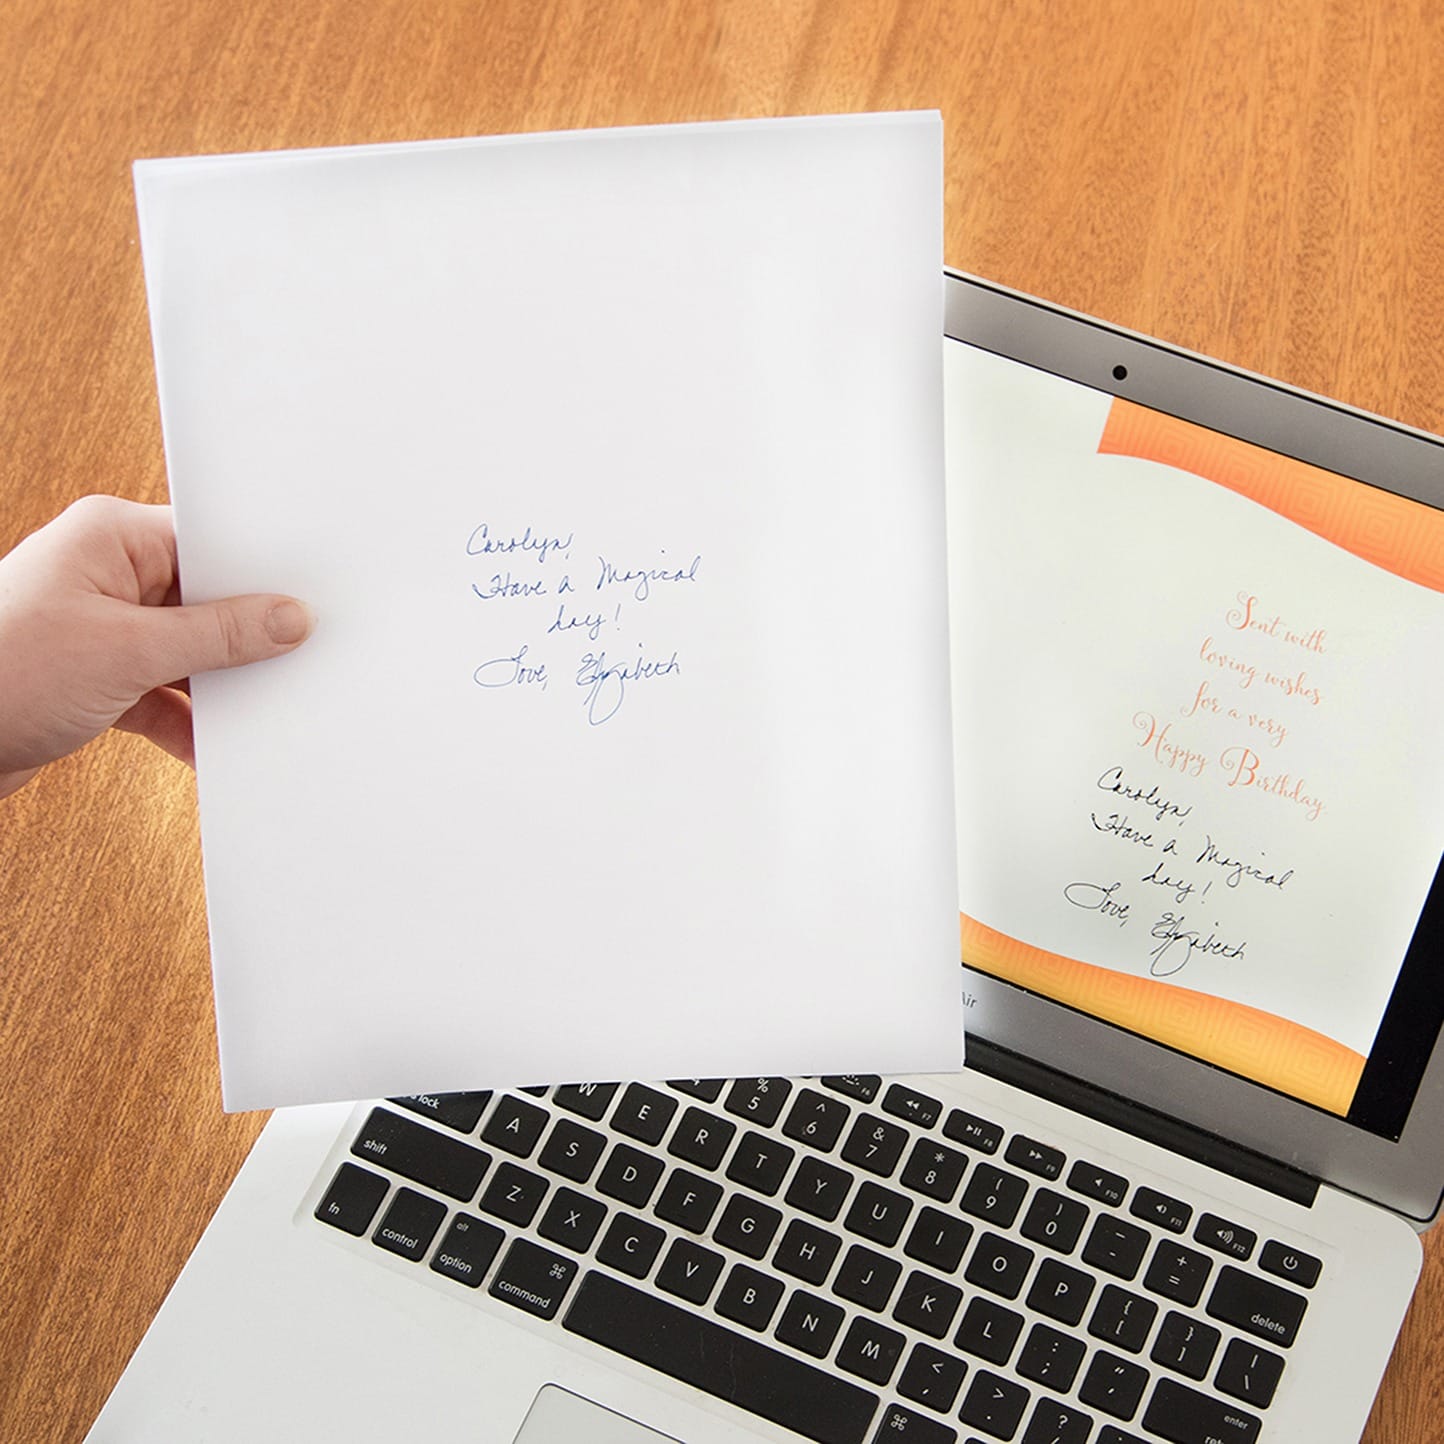 Carolyn,
Have a Magical
day!
Love, Elizabeth
Sent with
loving wishes
for a very
Happy Birthday
Carolyn,
Have a Magical
day!
Love, Elizabeth
Air
F6
◀◀ F7
▶|| F8
▶▶ F9
F10
F11
F12
% 5
^ 6
& 7
* 8
( 9
) 0
– -
+ =
delete
W E R T Y U I O P { [ } ] | \
lock A S D F G H J K L : ; " ' enter
shift Z X C V B N M < , > . ? /
fn control alt option ⌘ command ⌘